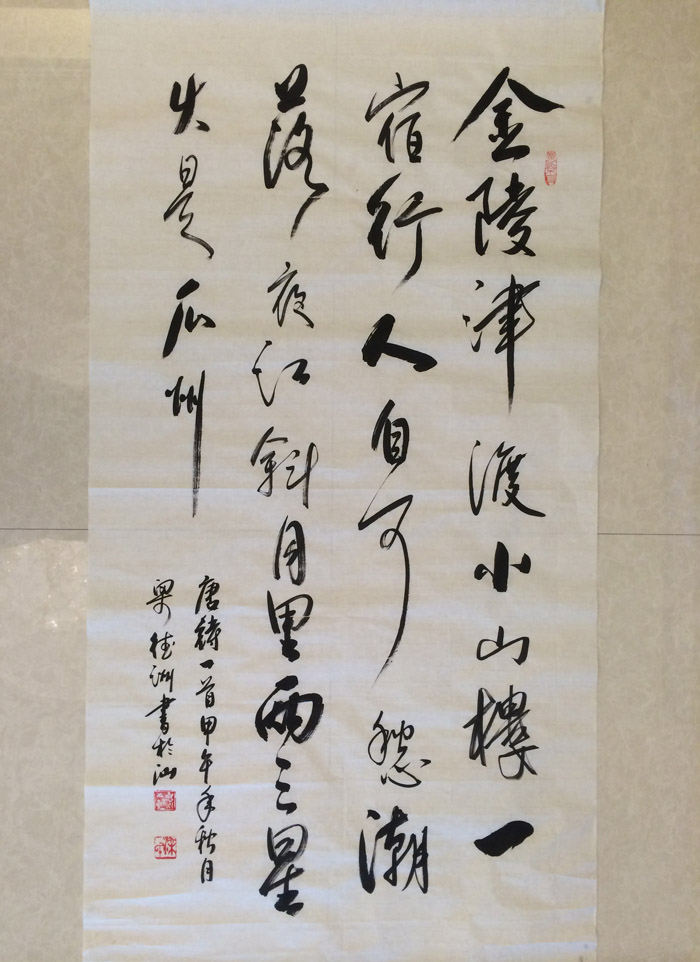 金陵津渡小山樓一
宿行人自可愁潮
落夜江斜月里兩三星
火是瓜州
唐詩一首甲午年秋月
梁洲書於汕